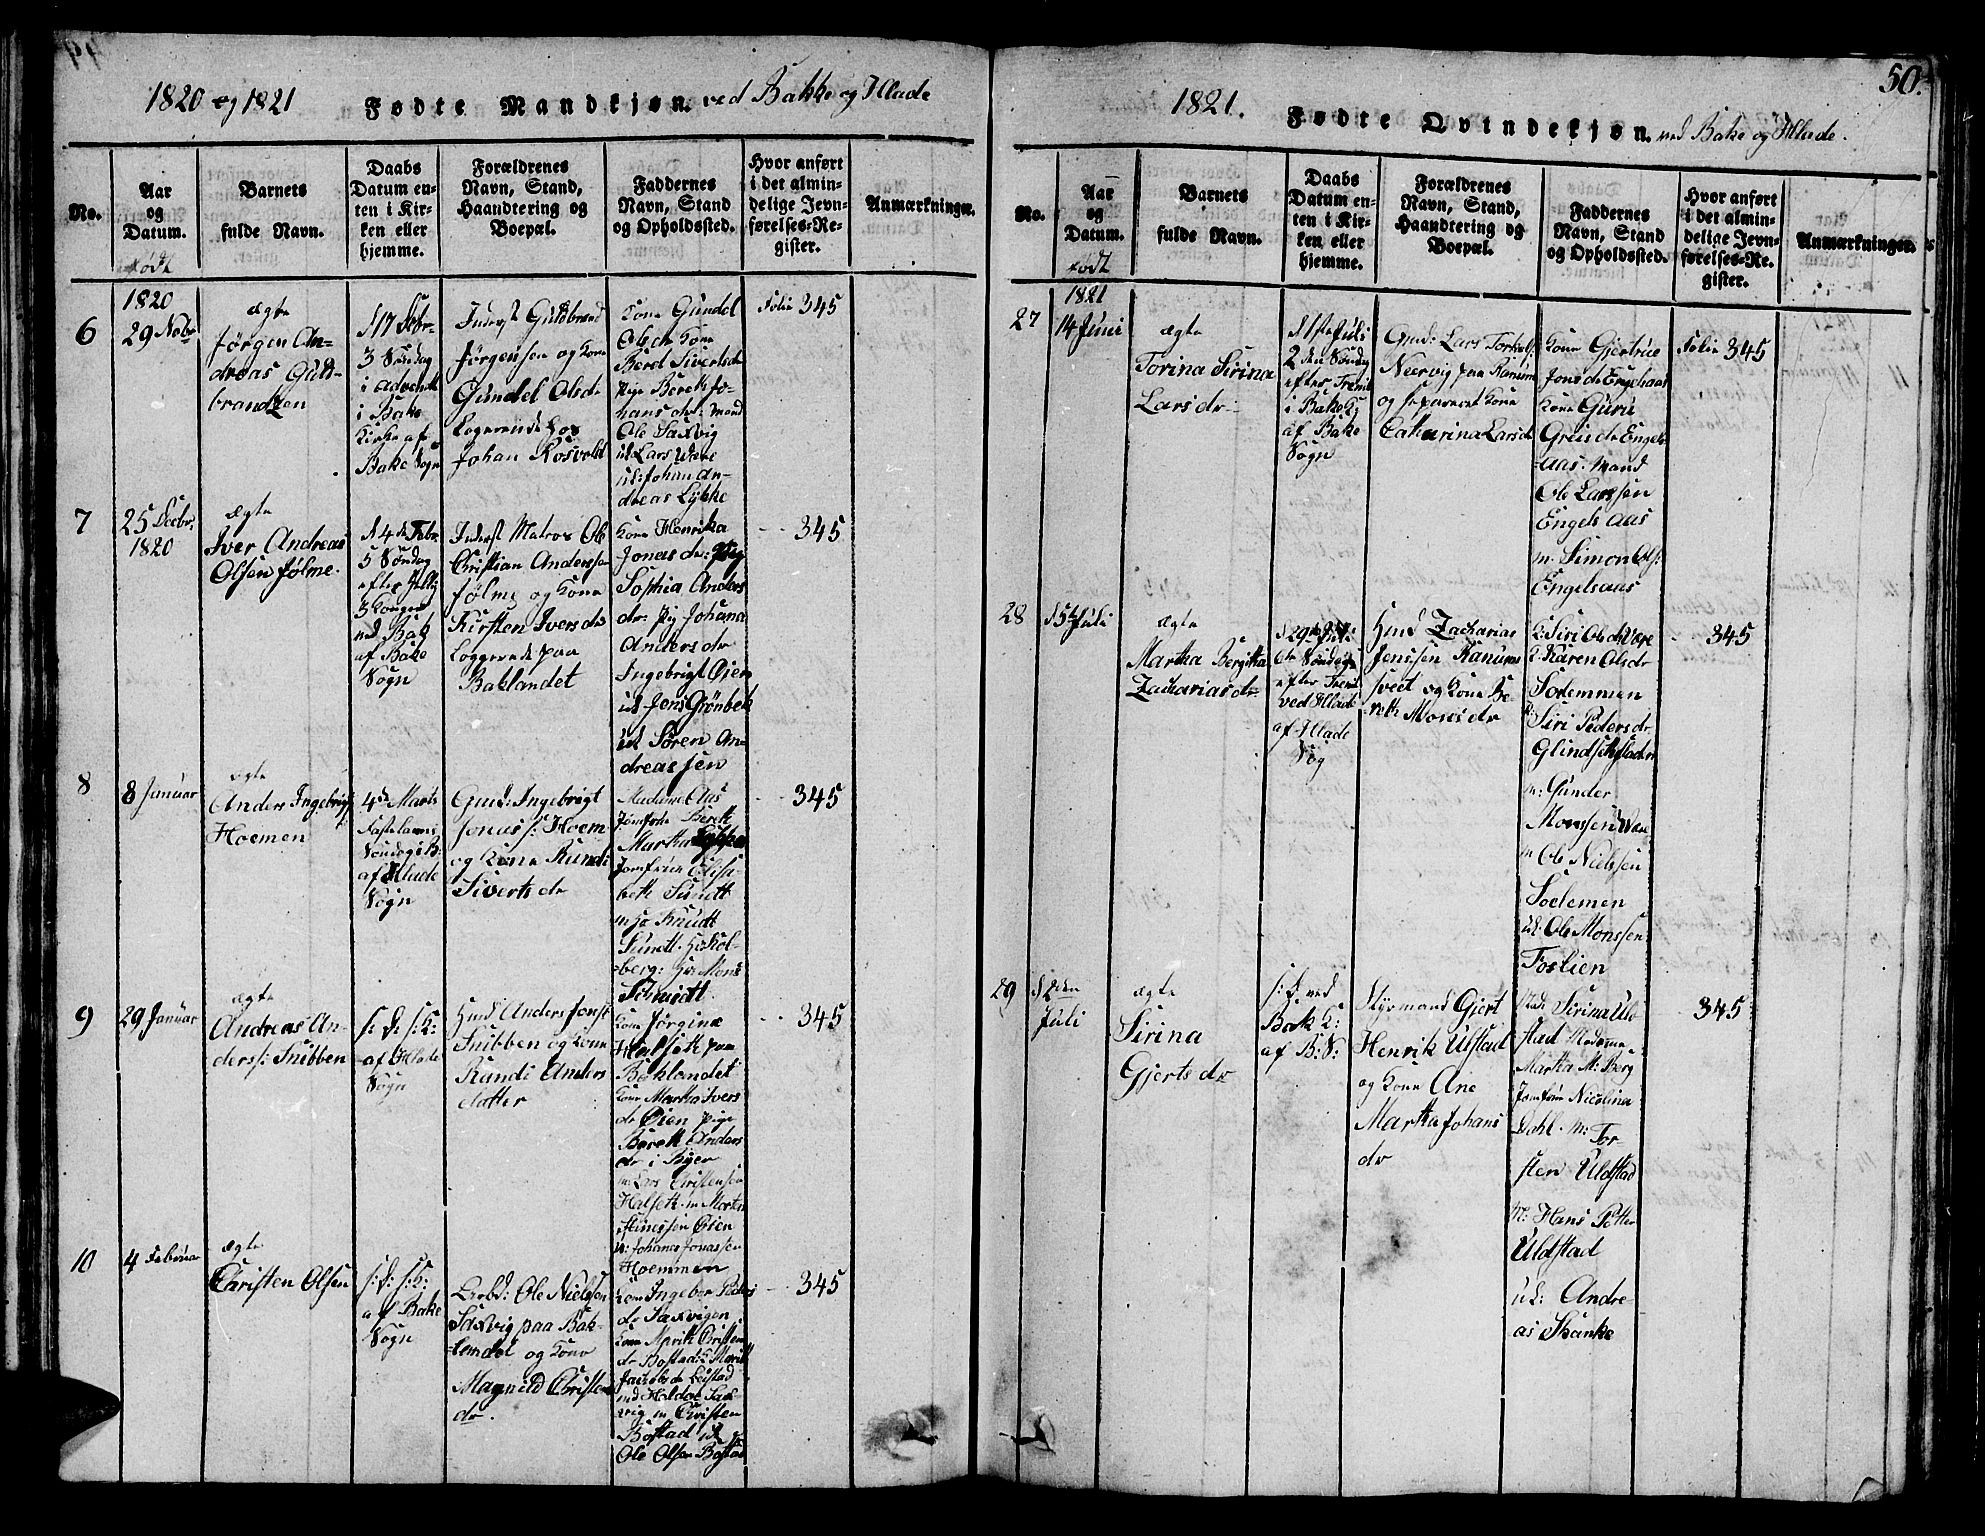 1820 og 1821 Fødte Mandkjøn. ved Bakke og Hlade
No.
Aar
og
Datum.
født
Barnets
fulde Navn.
Daabs
Datum en-
ten i Kir-
ken eller
hjemme.
Forældrenes
Navn, Stand,
Haandtering og
Boepæl.
Faddernes
Navn, Stand
og Opholdssted.
Hvor anført
i det almin-
delige Jevn-
førelses-Re-
gister.
Anmærkninger.
6
1820
29 Nobr
ægte
Jørgen An-
dreas Guld-
brandzen
3 Søndag
i Advent
i Bake
Kirke af
Bake Sogn
Inderst Guldbrand
Jørgensen og Kone
Gundel Olsdr
Logerende hos
Johan Rosvold
Kone Gundel
Olsdr Kone
Berel Sivertsdr
Pige Berek Jo-
hansdr: Mand
Ole Saxvig
uk Lars Wære
uk: Johan An-
dreas Lykke
Folio 345
7
25 Decbr.
1820
ægte
Iver Andreas
Olsen Jølme.
d 4de Febr
5 Søndag
efter Hellig
3 Konger
ved Bak
af Bake
Sogn
Inderst Matros Ole
Christian Anderssen
Jølme og Kone
Kirsten Iversdr
Loggerende paa
Baklandet
Kone Henrika
Jonasdr: Pig
Sophia Anders
dr: Pig Johana
Andersdr
Ingebrigt Øien
uk Jens Grønbek
uk Søren An-
dreassen
345
8
8 Januar
ægte
Anders Ingebrigts:
Hoemen
4de Marts
Fastelavns
Søndag i B:
af Hlade
Sogn
Gmd: Ingebrigt
Jonas s: Hoem
og Kone Rundi
Sivertsdr
Madame Aas
Jomfrue Berek
Martha Lykke
Jomfrue Elisa
bek Sundt
m Hr Knudt
Sundt. Hr Kol-
berg: Hr Mons
Schmidt.
345
9
29 Januar
ægte
Andreas An-
ders s: Snibben
s: D: s: K:
af Hlade
Sogn
Hmd Anders Jons s
Snibben og Kone
Rundi Anders
datter
Kone Jørgine
Halsek paa
Baklandet
Kone Martha Ivers
dr Øien pige
Berek Anders
dr i Byen
m Lars Christensen
Halsek m Morten
Øien
m: Johannes Jonassen
Hoemmen
345
10
4 Februar
ægte
Christen Olsen
s: D: s: K:
af Bake
Sogn
Arbd: Ole Nielssen
Saxvig paa Bak-
landet og Kone
Magnild Christens
dr.
Kone Ingebor Peders
dr Saxvigen
Kone Marik Christen
dr Bostad: Marik
Jacobsdr Leistad
m Christen
Bostad uk
Ole Olsen Bostad
345
50.
1821. Fødte Qvindekjøn. ved Bake og Hlade.
No.
Aar
og
Datum.
født
Barnets
fulde Navn.
Daabs
Datum en-
ten i Kir-
ken eller
hjemme.
Forældrenes
Navn, Stand,
Haandtering og
Boepæl.
Faddernes
Navn, Stand
og Opholdssted.
Hvor anført
i det almin-
delige Jevn-
førelses-Re-
gister.
Anmærkninger.
27
1821
14 Juni
ægte
Torina Sirina
Larsdr
d 1ste Juli
2den Søndag
efter Trenit
i Bake K:
af Bake
Sogn
Gmd: Lars Torkels:
Neervig paa Ranum
og separeret Kone
Catharina Larsdr
Kone Gjertrue
Jonsdr Engelsaas
Kone Guru
Greisdr Engels
aas. Mand
Ole Larssen
Engelsaas
m. Simon Ols:
Engelsaas
Folio 345
28
d 5te Juli
ægte
Martha Bergitta
Zachariasdr
d 29de Juli
6te Søndag
efter Trenit
ved Hlade
af Hlade
Sog
Hmd Zacharias
Jenssen Ranums
sveet og Kone Be-
rek Monsdr
K: Siri Olsdr Være
K: Karen Olsdr
Soelemmen
P: Siri Pedersdr
m: Gunder
Monssen Wære
m Ole Nielssen
Soelemen
uk: Ole Monssen
Foslien
345
29
d 12den
Juli
ægte
Sirina
Gjertsdr
s: D: ved
Bak K:
af B: S:
Styrmand Gjert
Henrik Ulstad
og Kone Ane
Martha Johans
dr
Mad: Sirina Ul-
stad Madame
Martha M: Berg
Jomfrue Nicolina
Dahl. m: Tor-
sten Uldstad
m: Hans Petter
Uldstad
uk: Andre-
as Skanke
345